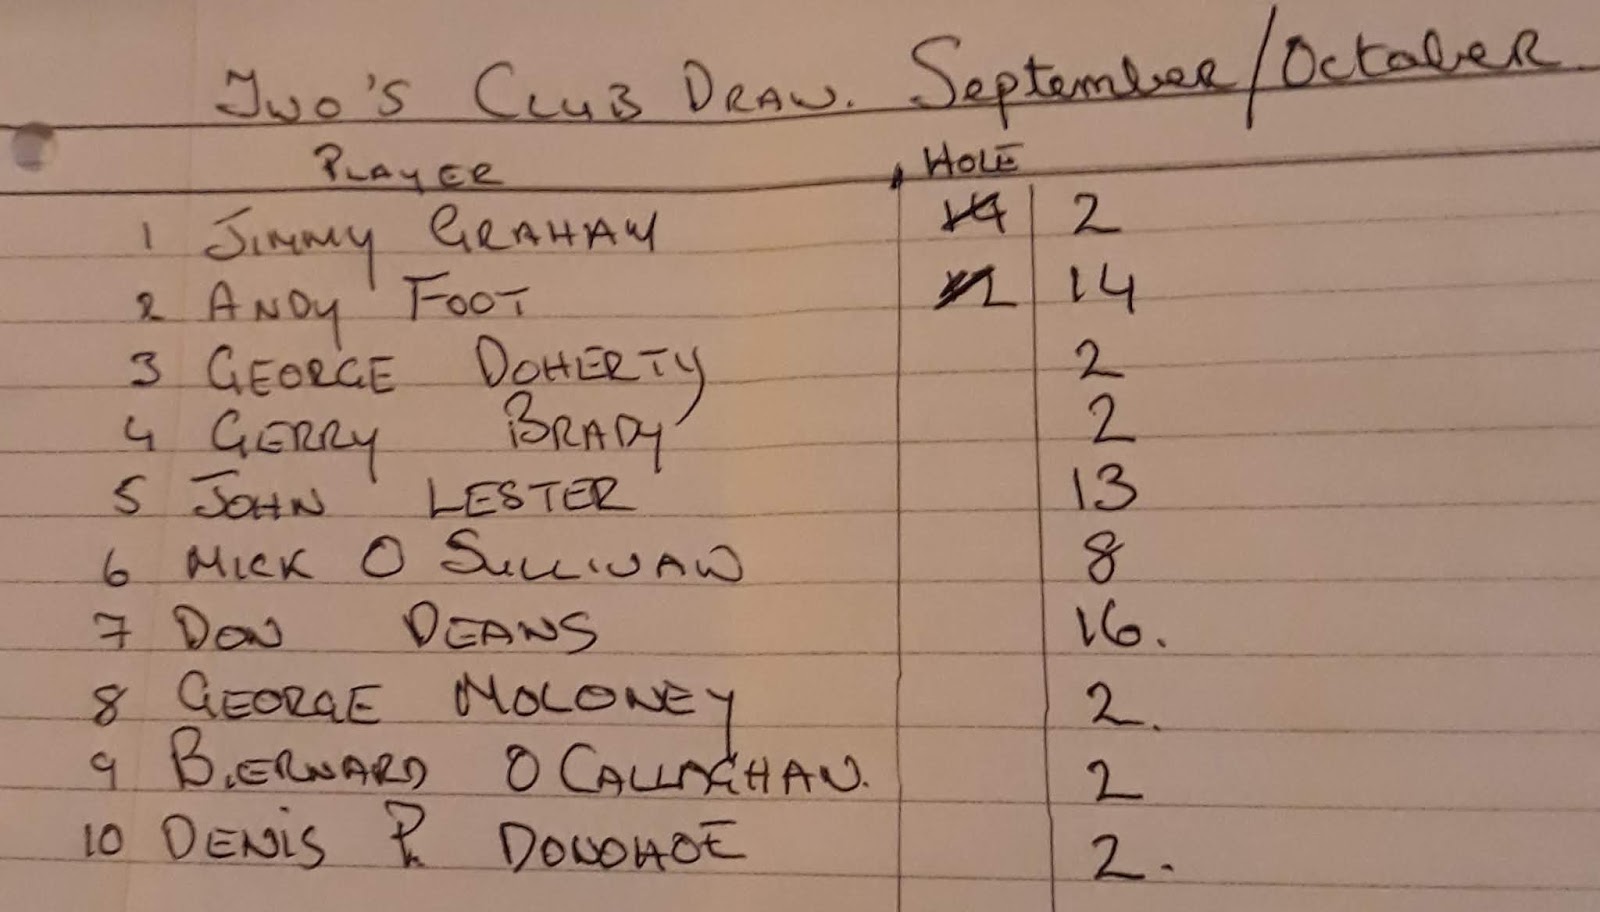 Two's Club Draw. September/October
PLAYER HOLE
1 JIMMY GRAHAM 14 2
2 ANDY FOOT 14
3 GEORGE DOHERTY 2
4 GERRY BRADY 2
5 JOHN LESTER 13
6 MICK O SULLIVAN 8
7 DON DEANS 16.
8 GEORGE MOLONEY 2.
9 BERNARD O CALLAGHAN. 2
10 DENIS P DONOHOE 2.